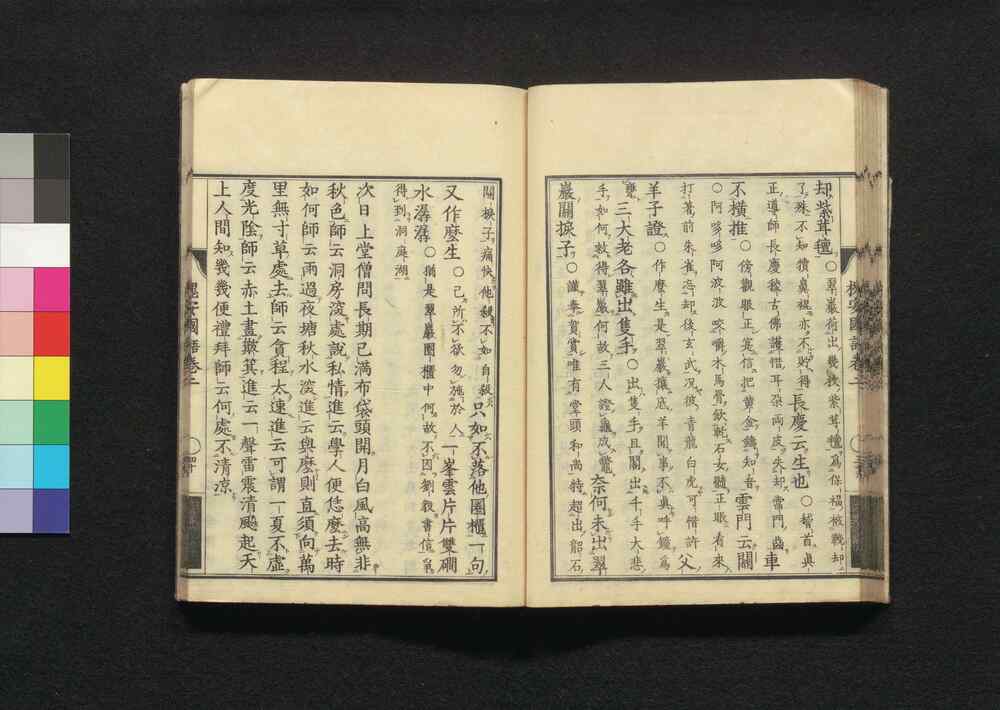 却紫茸氊○翠巖荷出幾枚紫茸氊爲保福被戰却
了殊不知犢鼻裩亦不貯得長慶云生也○稽首眞
正導師長慶稜古佛護惜耳朶兩皮失却當門齒車
不橫推○傍觀眼正寔信把黃金鑄知音雲門云關
○阿哆哆阿波波咬嚼木馬鶯飲乾石女髓正眼看來
打著前朱雀忘却後玄武況彼靑龍白虎可惜許父
羊子證○作麼生是翠巖攘底羊聞事不眞呼鐘爲
甕三大老各雖出隻手○出隻手且閣出千手大悲
手如何救得翠巖何故三人證龜成鼈奈何未出翠
巖關捩子○讖奉賀賞唯有掌頭和尚特超出韶石
關捩子痛快他殺不如自殺只如不落他圈櫃一句
又作麼生○己所不欲勿施於人一峯雲片片雙磵
水潺潺○猶是翠巖圈櫃中何故不因劉毅書信爭
得到洞庭湖
次日上堂僧問長期已滿布袋頭開月白風高無非
秋色師云洞房深處說私情進云學人便恁麼去時
如何師云雨過夜塘秋水深進云與麼則直須向萬
里無寸草處去師云貪程太速進云可謂一夏不虛
度光陰師云赤土畫簸箕進云一聲雷震淸颷起天
上人間知幾幾便禮拜師云何處不淸凉
槐安國語卷二